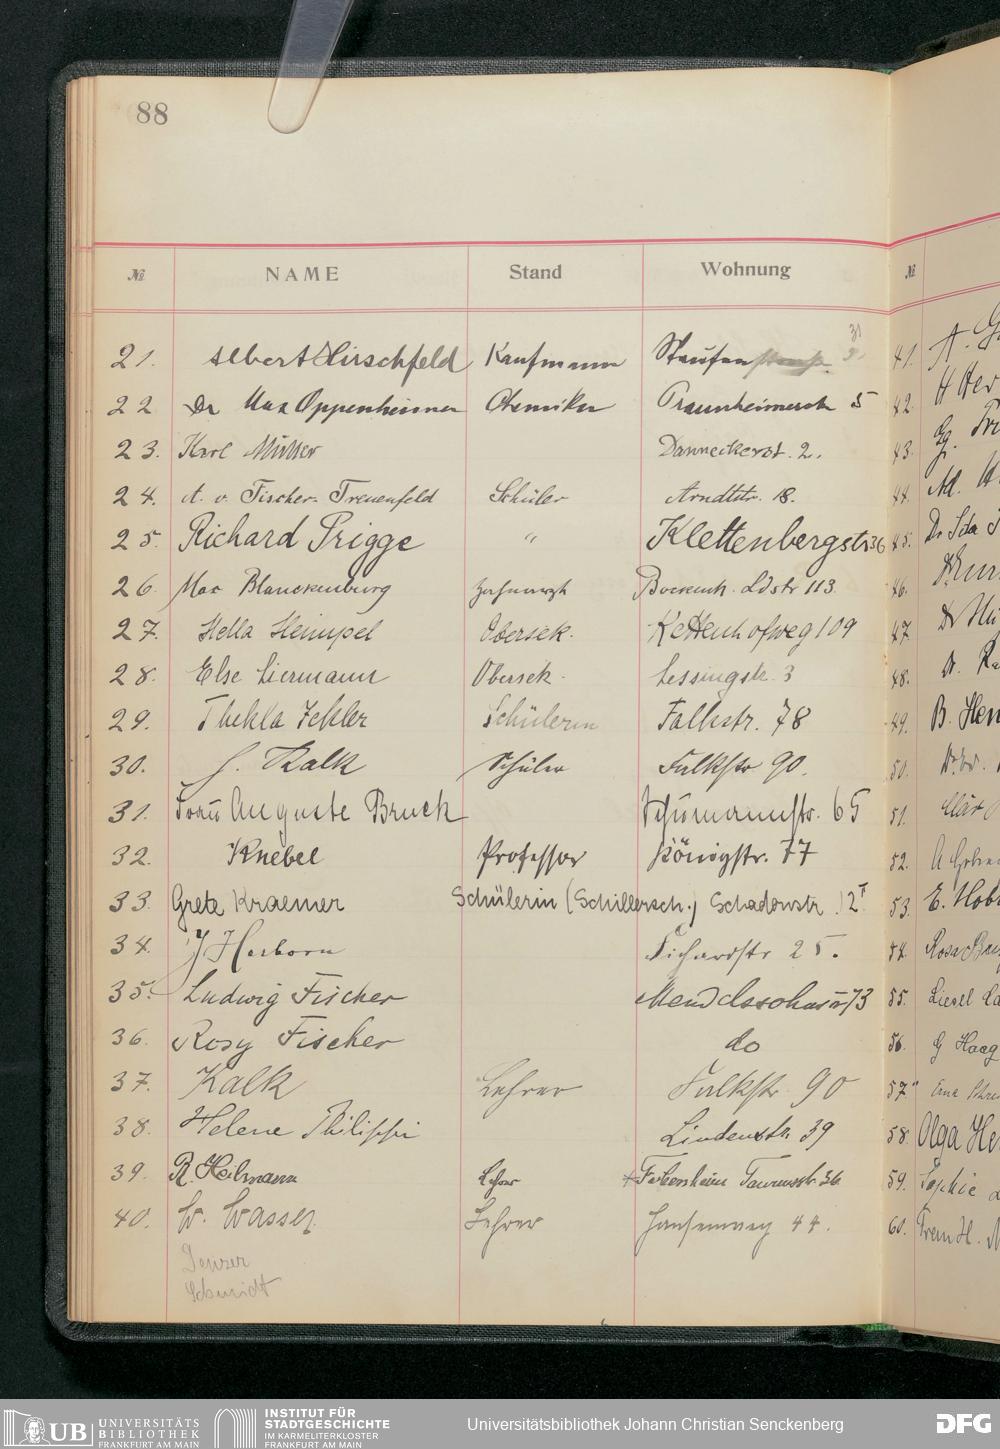 88
№ NAME Stand Wohnung
21. Albert Hirschfeld Kaufmann Staufenstrasse 31
22 Dr Max Oppenheimer Chemiker Praunheimerstr 5
23. Karl Müller Danneckerst. 2.
24. A. v. Fischer-Treuenfeld Schüler Arndtstr. 18.
25. Richard Prigge " Klettenbergstr 36
26. Max Blanckenburg Zahnarzt Bockenh. Ldstr 113.
27. Hella Heimpel Obersek. Kettenhofweg 109
28. Else Liermann Obersek. Lessingstr. 3
29. Thekla Schülerin Falkstr. 78
30. Kalk Schüler Falkstr 90.
31. Frau Auguste Bruck Schumannstr. 65
32. Knebel Professor Königstr. 77
33. Grete Kraemer Schülerin (Schillersch.) Schadowstr. 12 I
34. J Herborn Fichardstr 25.
35. Ludwig Fischer Mendelssohnstr 73
36. Rosy Fischer do
37. Kalk Lehrer Falkstr 90
38. Helene Philippi Lindenstr. 39
39. R. Heilmann Lehrer Taunusstr 36
40. W. Wasser Lehrer Hansenweg 44.
Schmidt
№
41. A.
42. H
43. Gg.
44. Ad.
45. Dr Ida
46.
47 Dr
48. Dr.
49. B.
50.
51.
52. A
53. E.
54. Rosa
55. Liesel
56. G Haag
57. Erna
58. Olga
59. Sophie
60.
UB UNIVERSITÄTS
BIBLIOTHEK
FRANKFURT AM MAIN
INSTITUT FÜR
STADTGESCHICHTE
IM KARMELITERKLOSTER
FRANKFURT AM MAIN
Universitätsbibliothek Johann Christian Senckenberg
DFG